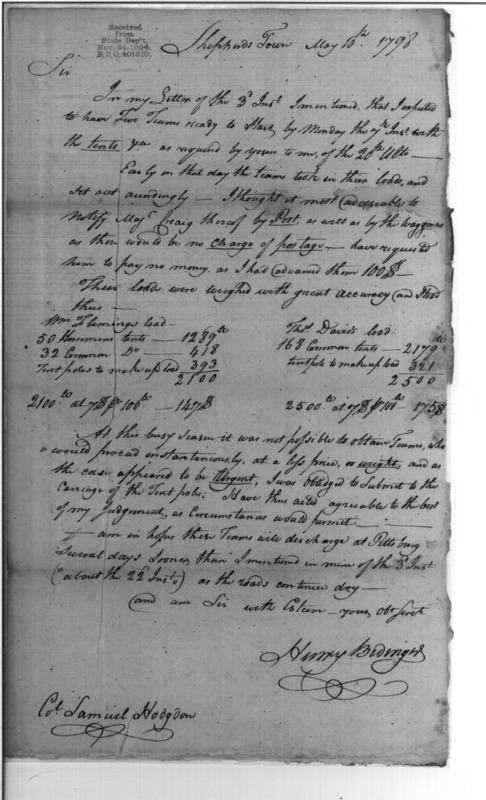 Received
from
State Dep't,
Nov. 24. 1894.
R.P.O. 401810.
Shepherds Town May 10th 1798
Sir
In my Letter of the 3d Inst I mentioned, that I expected
to have Five Teams ready to Start by Monday the 7th Inst with
the tents &ca as required by yours to me, of the 20th Ulto —
Early on that day the teams took in their loads, and
set out accordingly — I thought it most (adviseable to
notify Majr Craig thereof by Post, as well as by the Waggoners
as there would be no Charge of postage — have requested
him to pay no money, as I had (advanced them 100$ —
Their loads were weighed with great accuracy (and Stood
thus —
Wm Flemings load
50 Horsemens tents — 1289 lb
32 Common Do — 418
Tent poles to make up load 393
2100
2100 lb at 7$ pr 100 lb — 147$
Thos Davis's load
168 Common tents — 2179 lb
tent pole to make up load 321
2500
2500 lb at 7$ pr 100 lb — 175$
At this busy Season it was not possible to obtain Teams, who
would proceed instantaniously, at a less price, or weight, and as
the case appeared to be Urgent, I was obliged to Submit to the
Carriage of the Tent poles; I have thus acted agreeable to the best
of my Judgment, as Circumstances would permit —
— am in hopes these Teams will discharge at Pittsburg
Several days sooner than I mentioned in mine of the 3d Inst
("about the 22d Inst") as the roads continue dry —
(and am Sir with Esteem — your Obt Servt
Henry Bedinger
Col Samuel Hodgdon